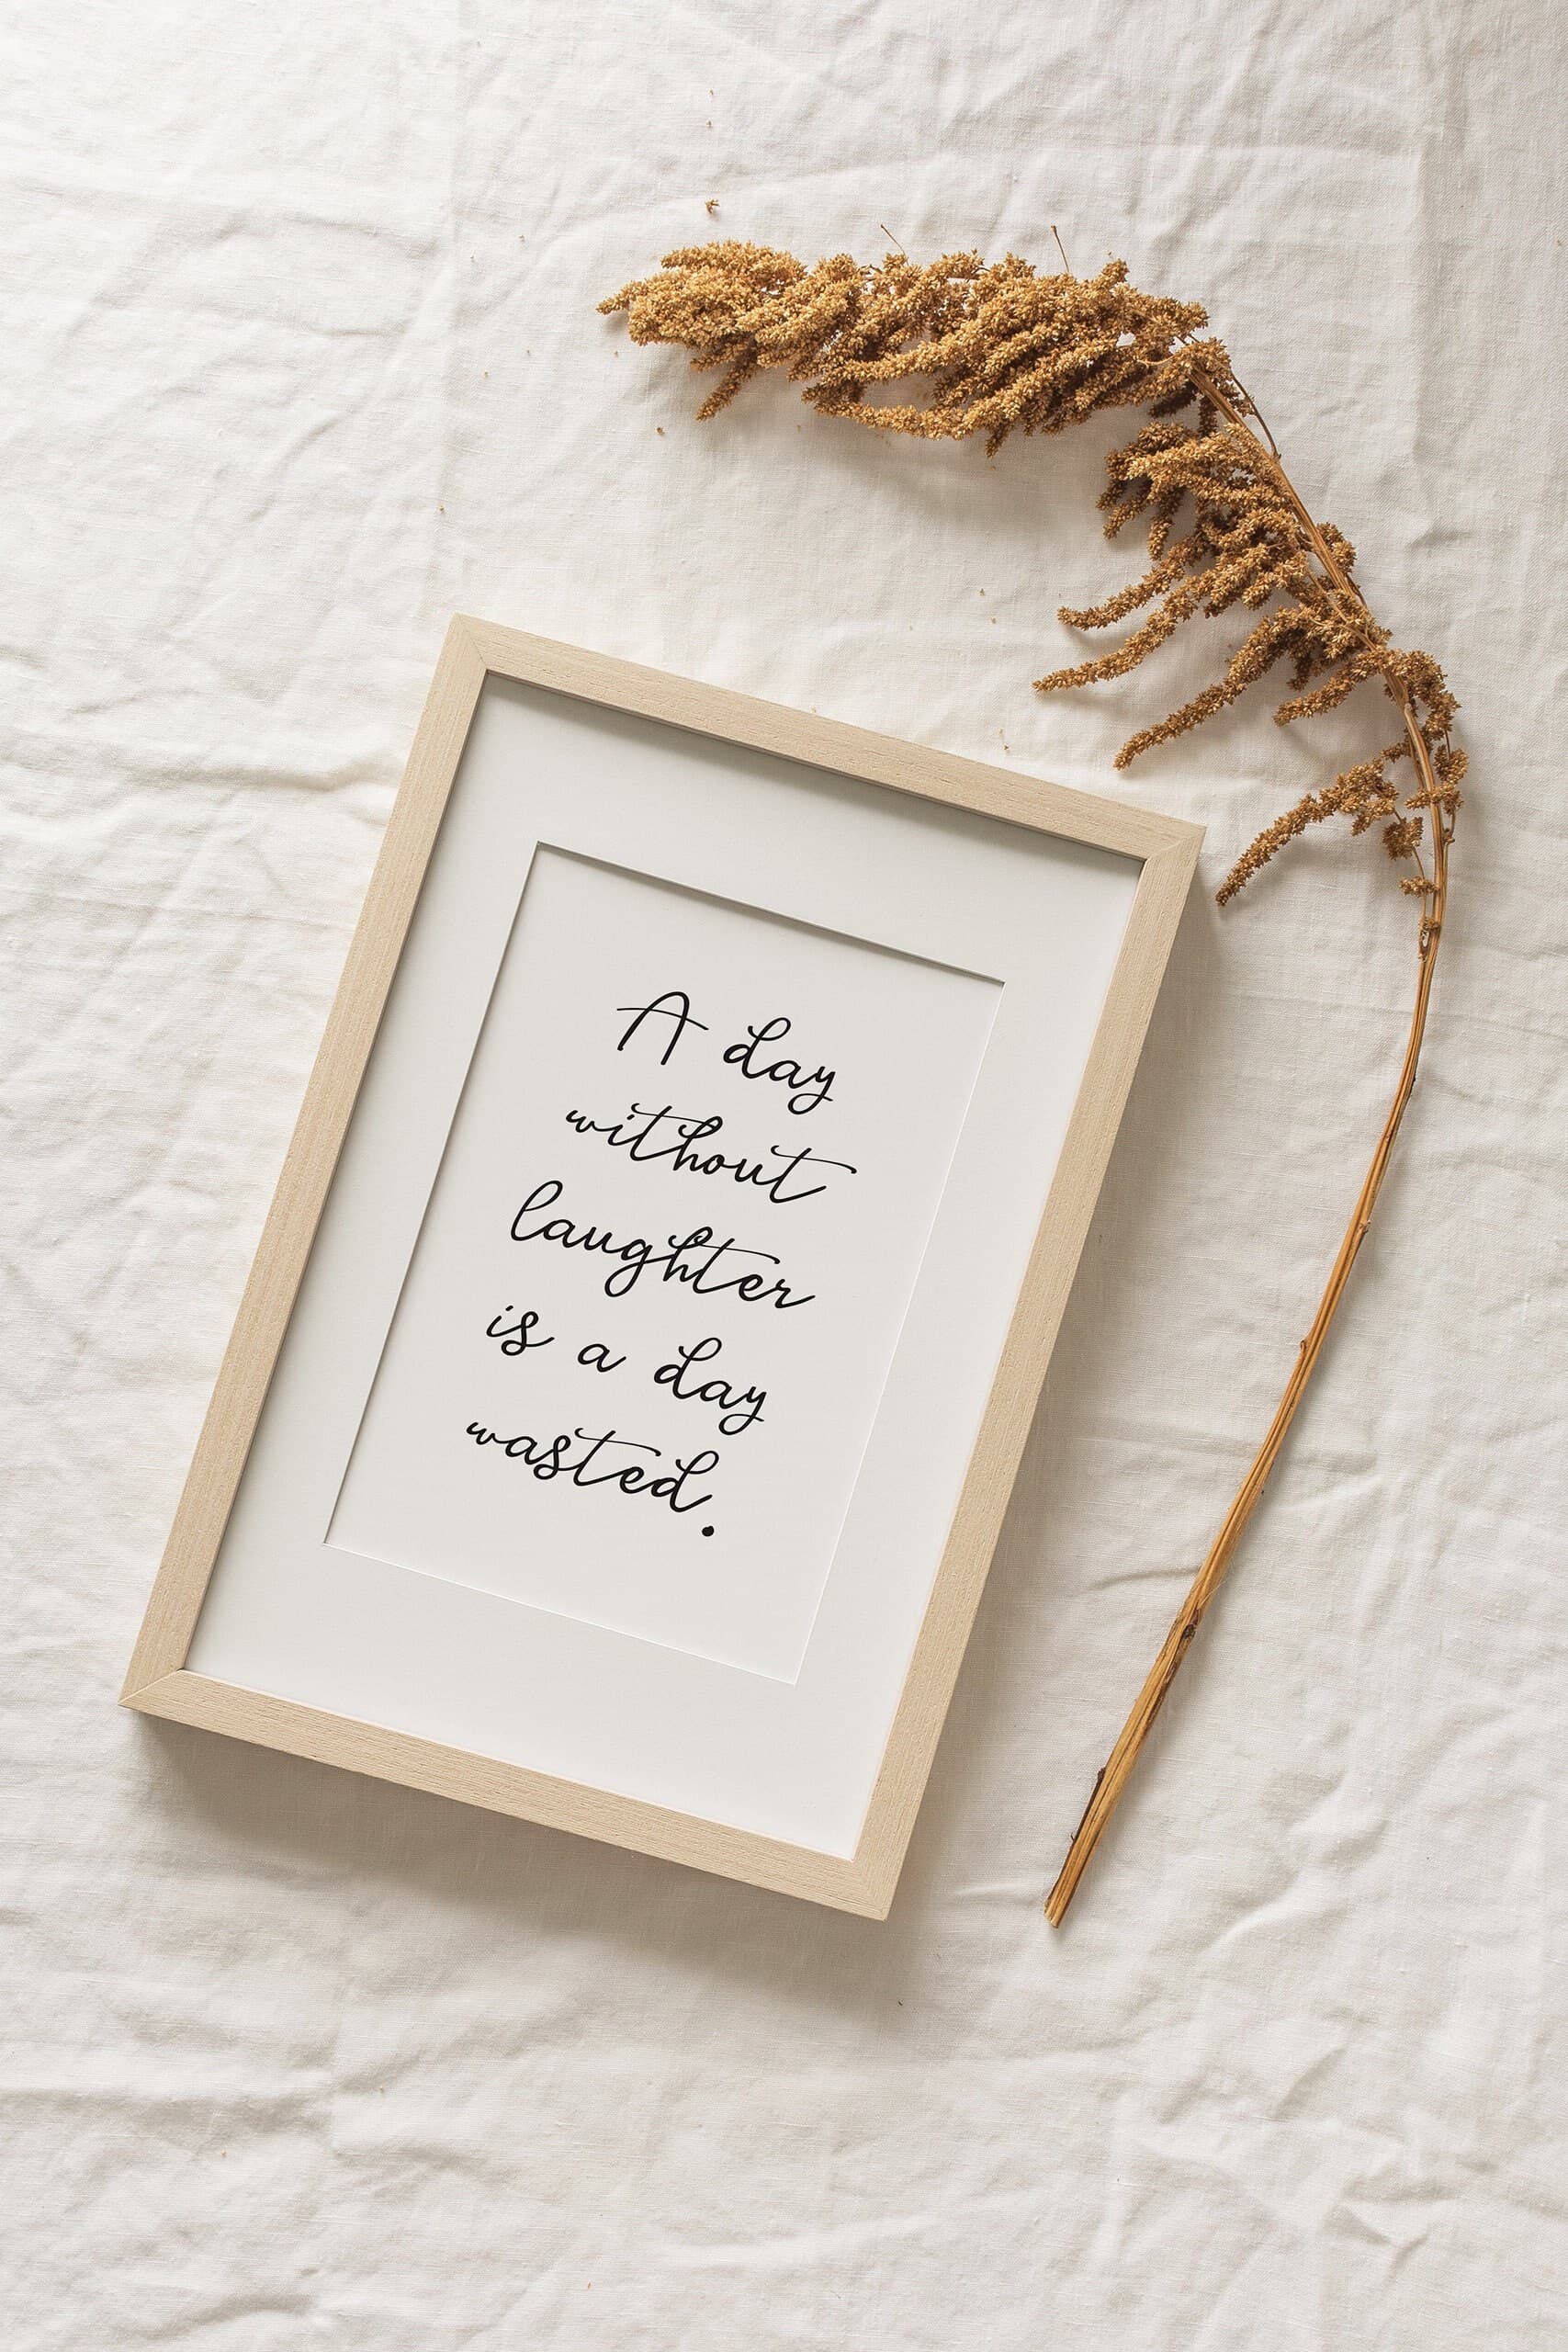 A day
without
laughter
is a day
wasted.